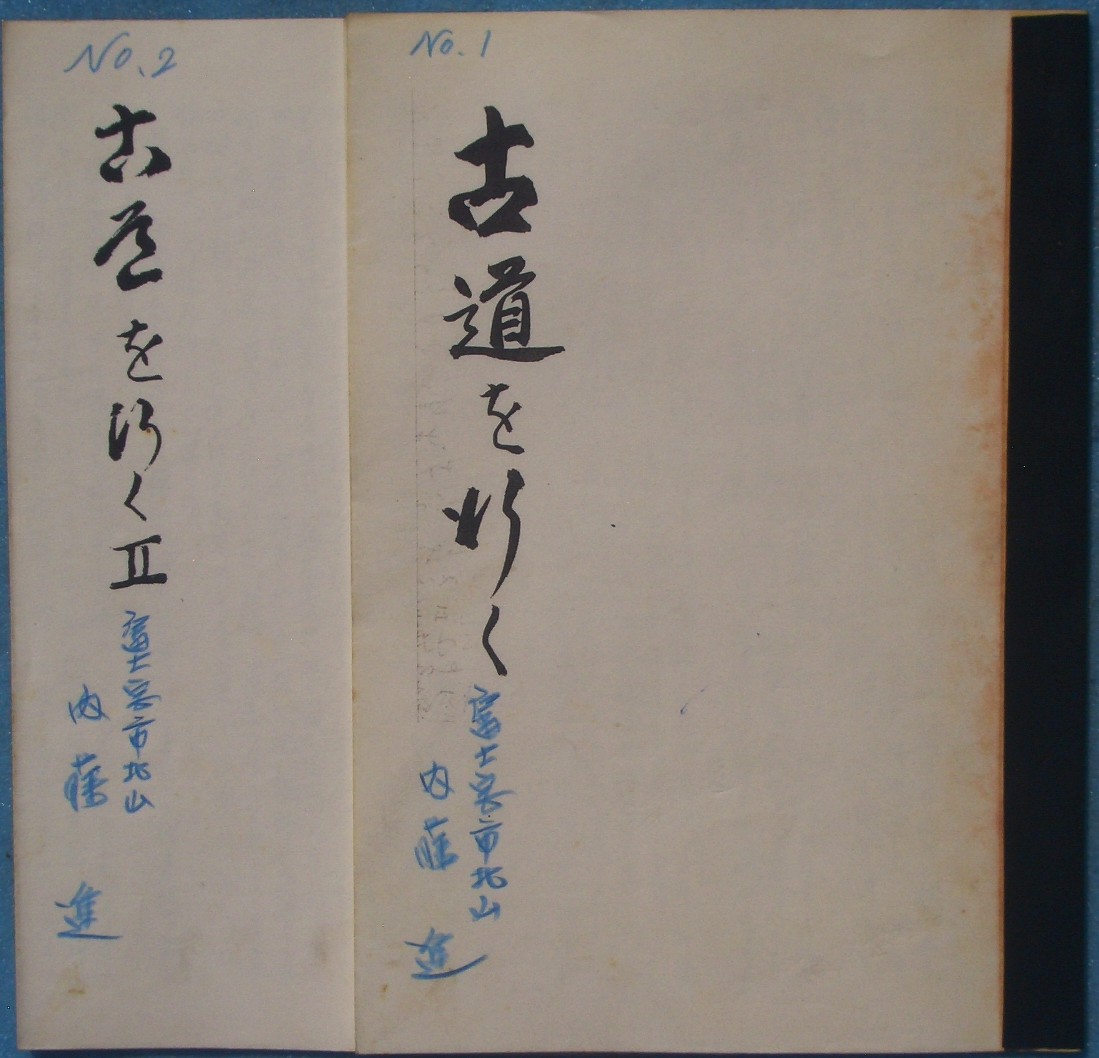 No.1
古道を行く
富士宮市北山
内藤 進
No.2
古道を行くⅡ
富士宮市北山
内藤 進